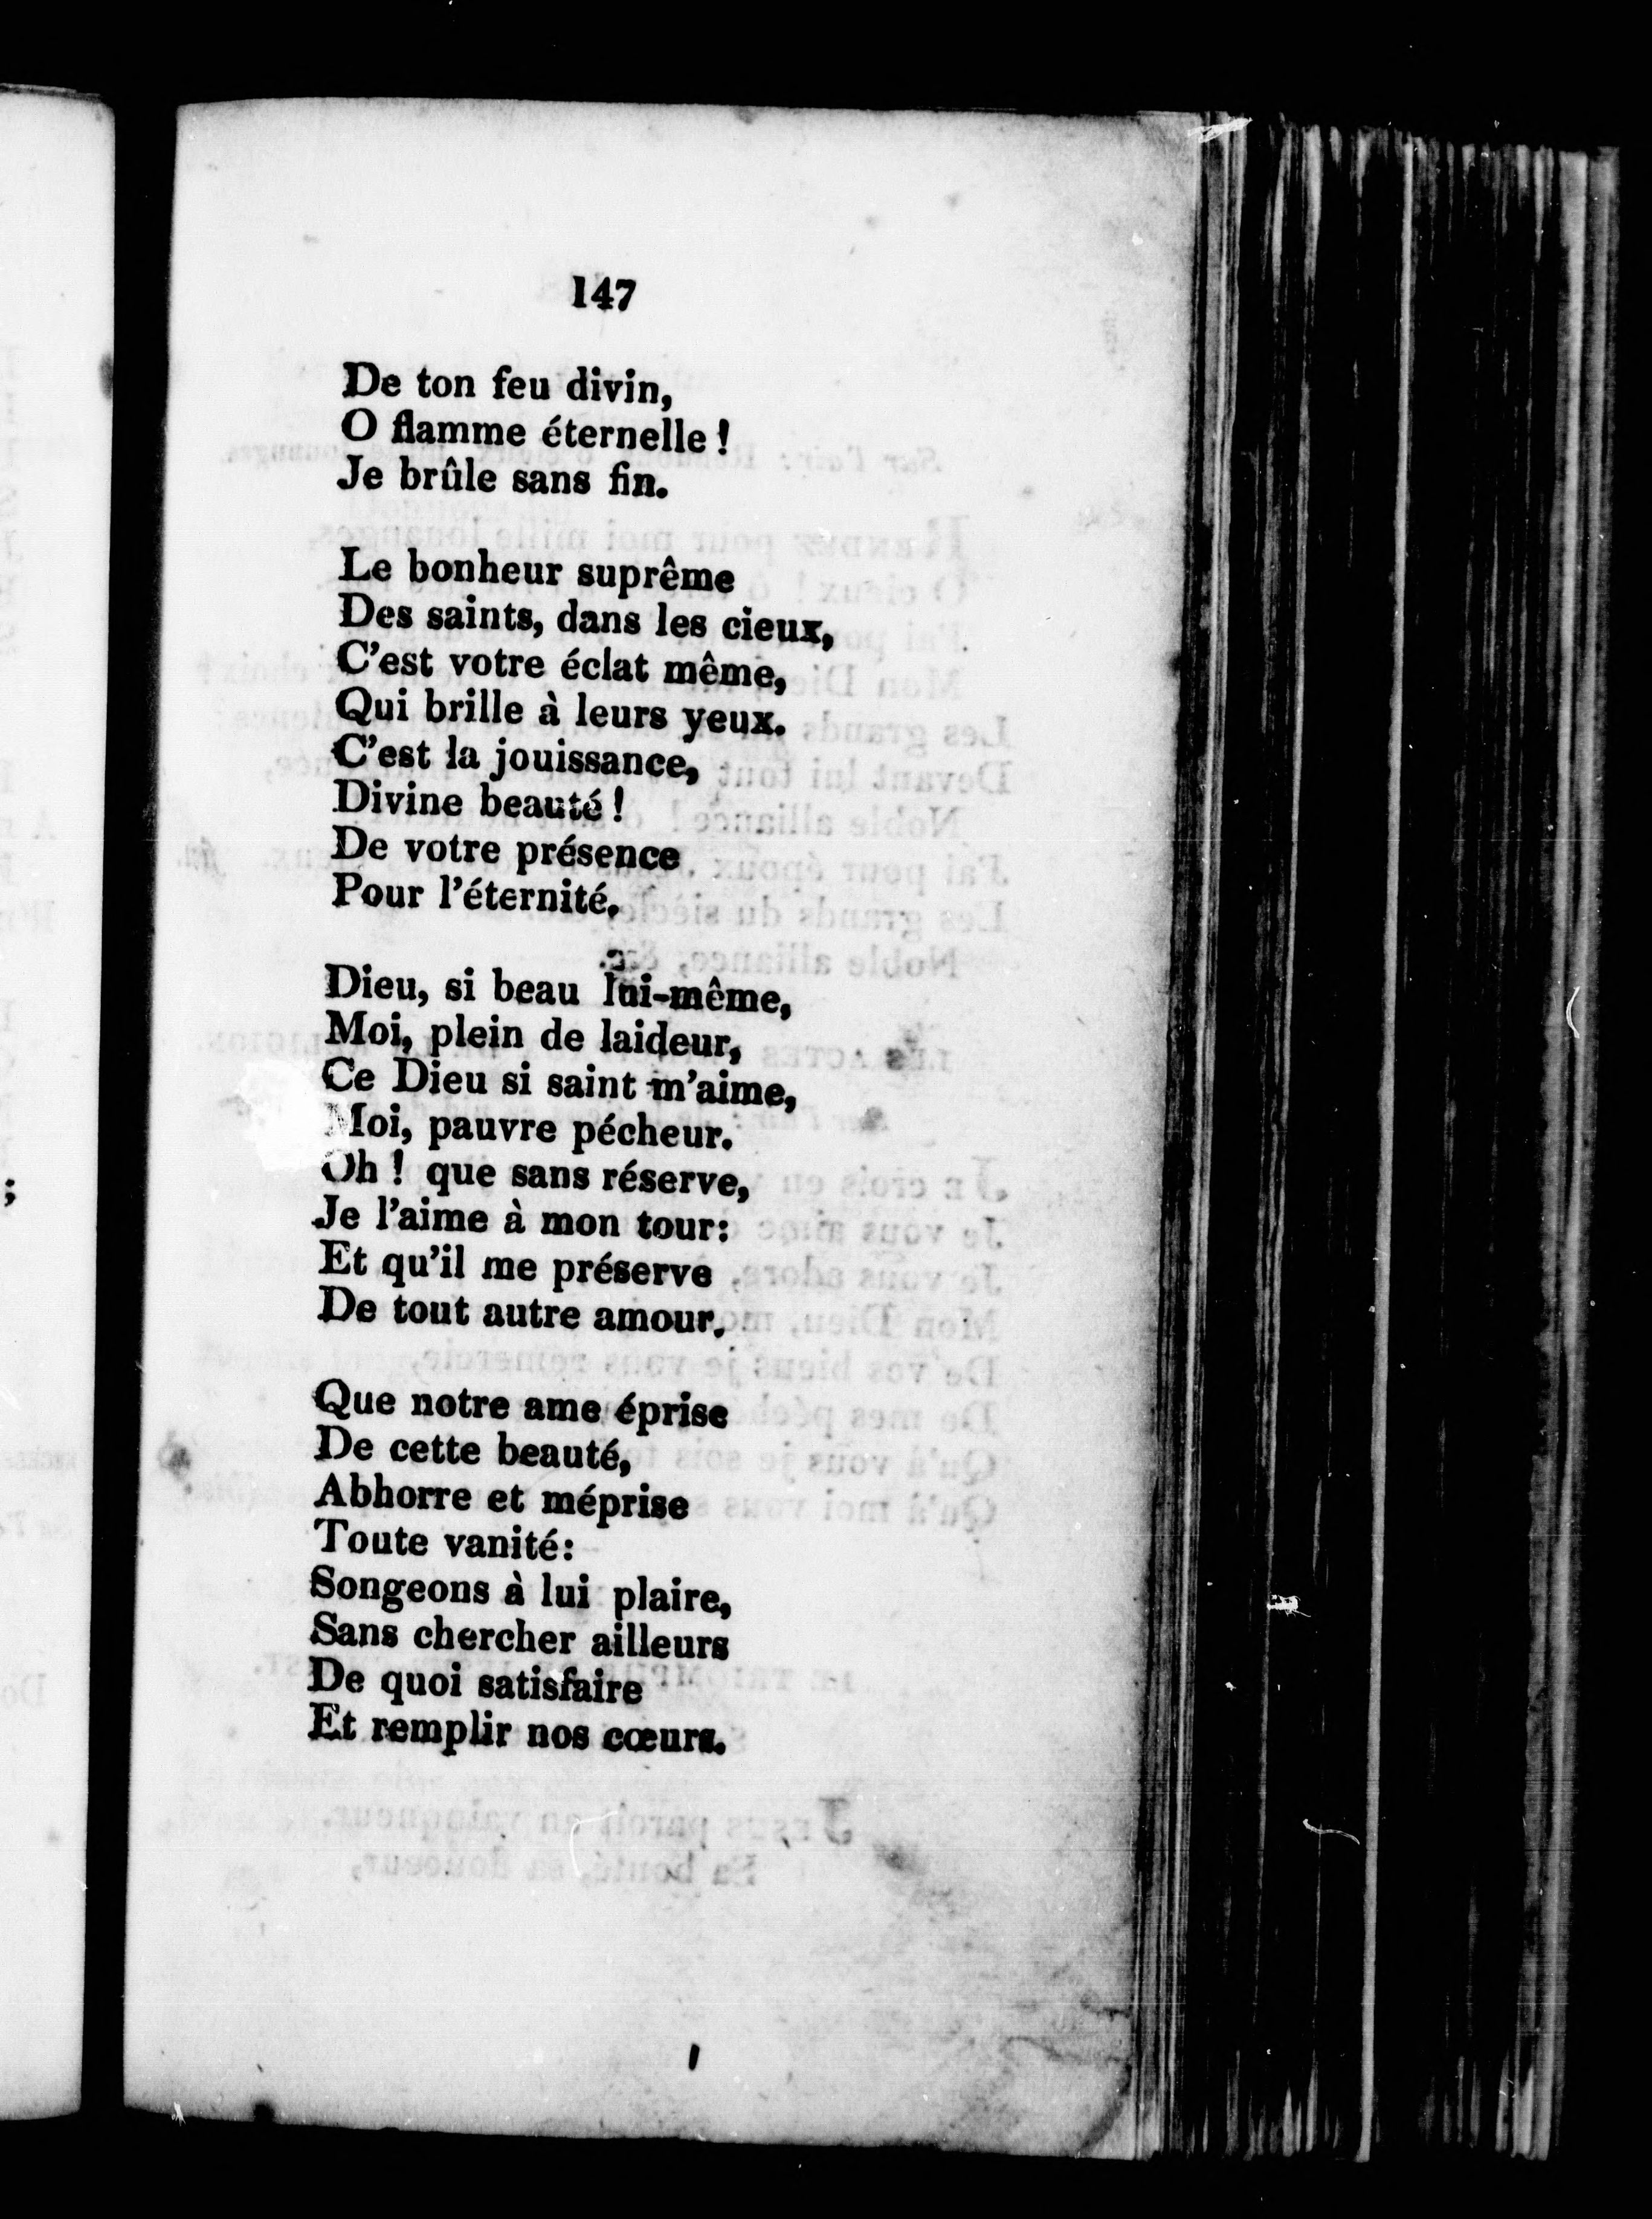 147
De ton feu divin,
O flamme éternelle !
Je brûle sans fin.
Le bonheur suprême
Des saints, dans les cieux,
C'est votre éclat même,
Qui brille à leurs yeux.
C'est la jouissance,
Divine beauté !
De votre présence
Pour l'éternité.
Dieu, si beau lui-même,
Moi, plein de laideur,
Ce Dieu si saint m'aime,
Moi, pauvre pécheur.
Oh ! que sans réserve,
Je l'aime à mon tour:
Et qu'il me préserve
De tout autre amour.
Que notre ame éprise
De cette beauté,
Abhorre et méprise
Toute vanité:
Songeons à lui plaire,
Sans chercher ailleurs
De quoi satisfaire
Et remplir nos cœurs.